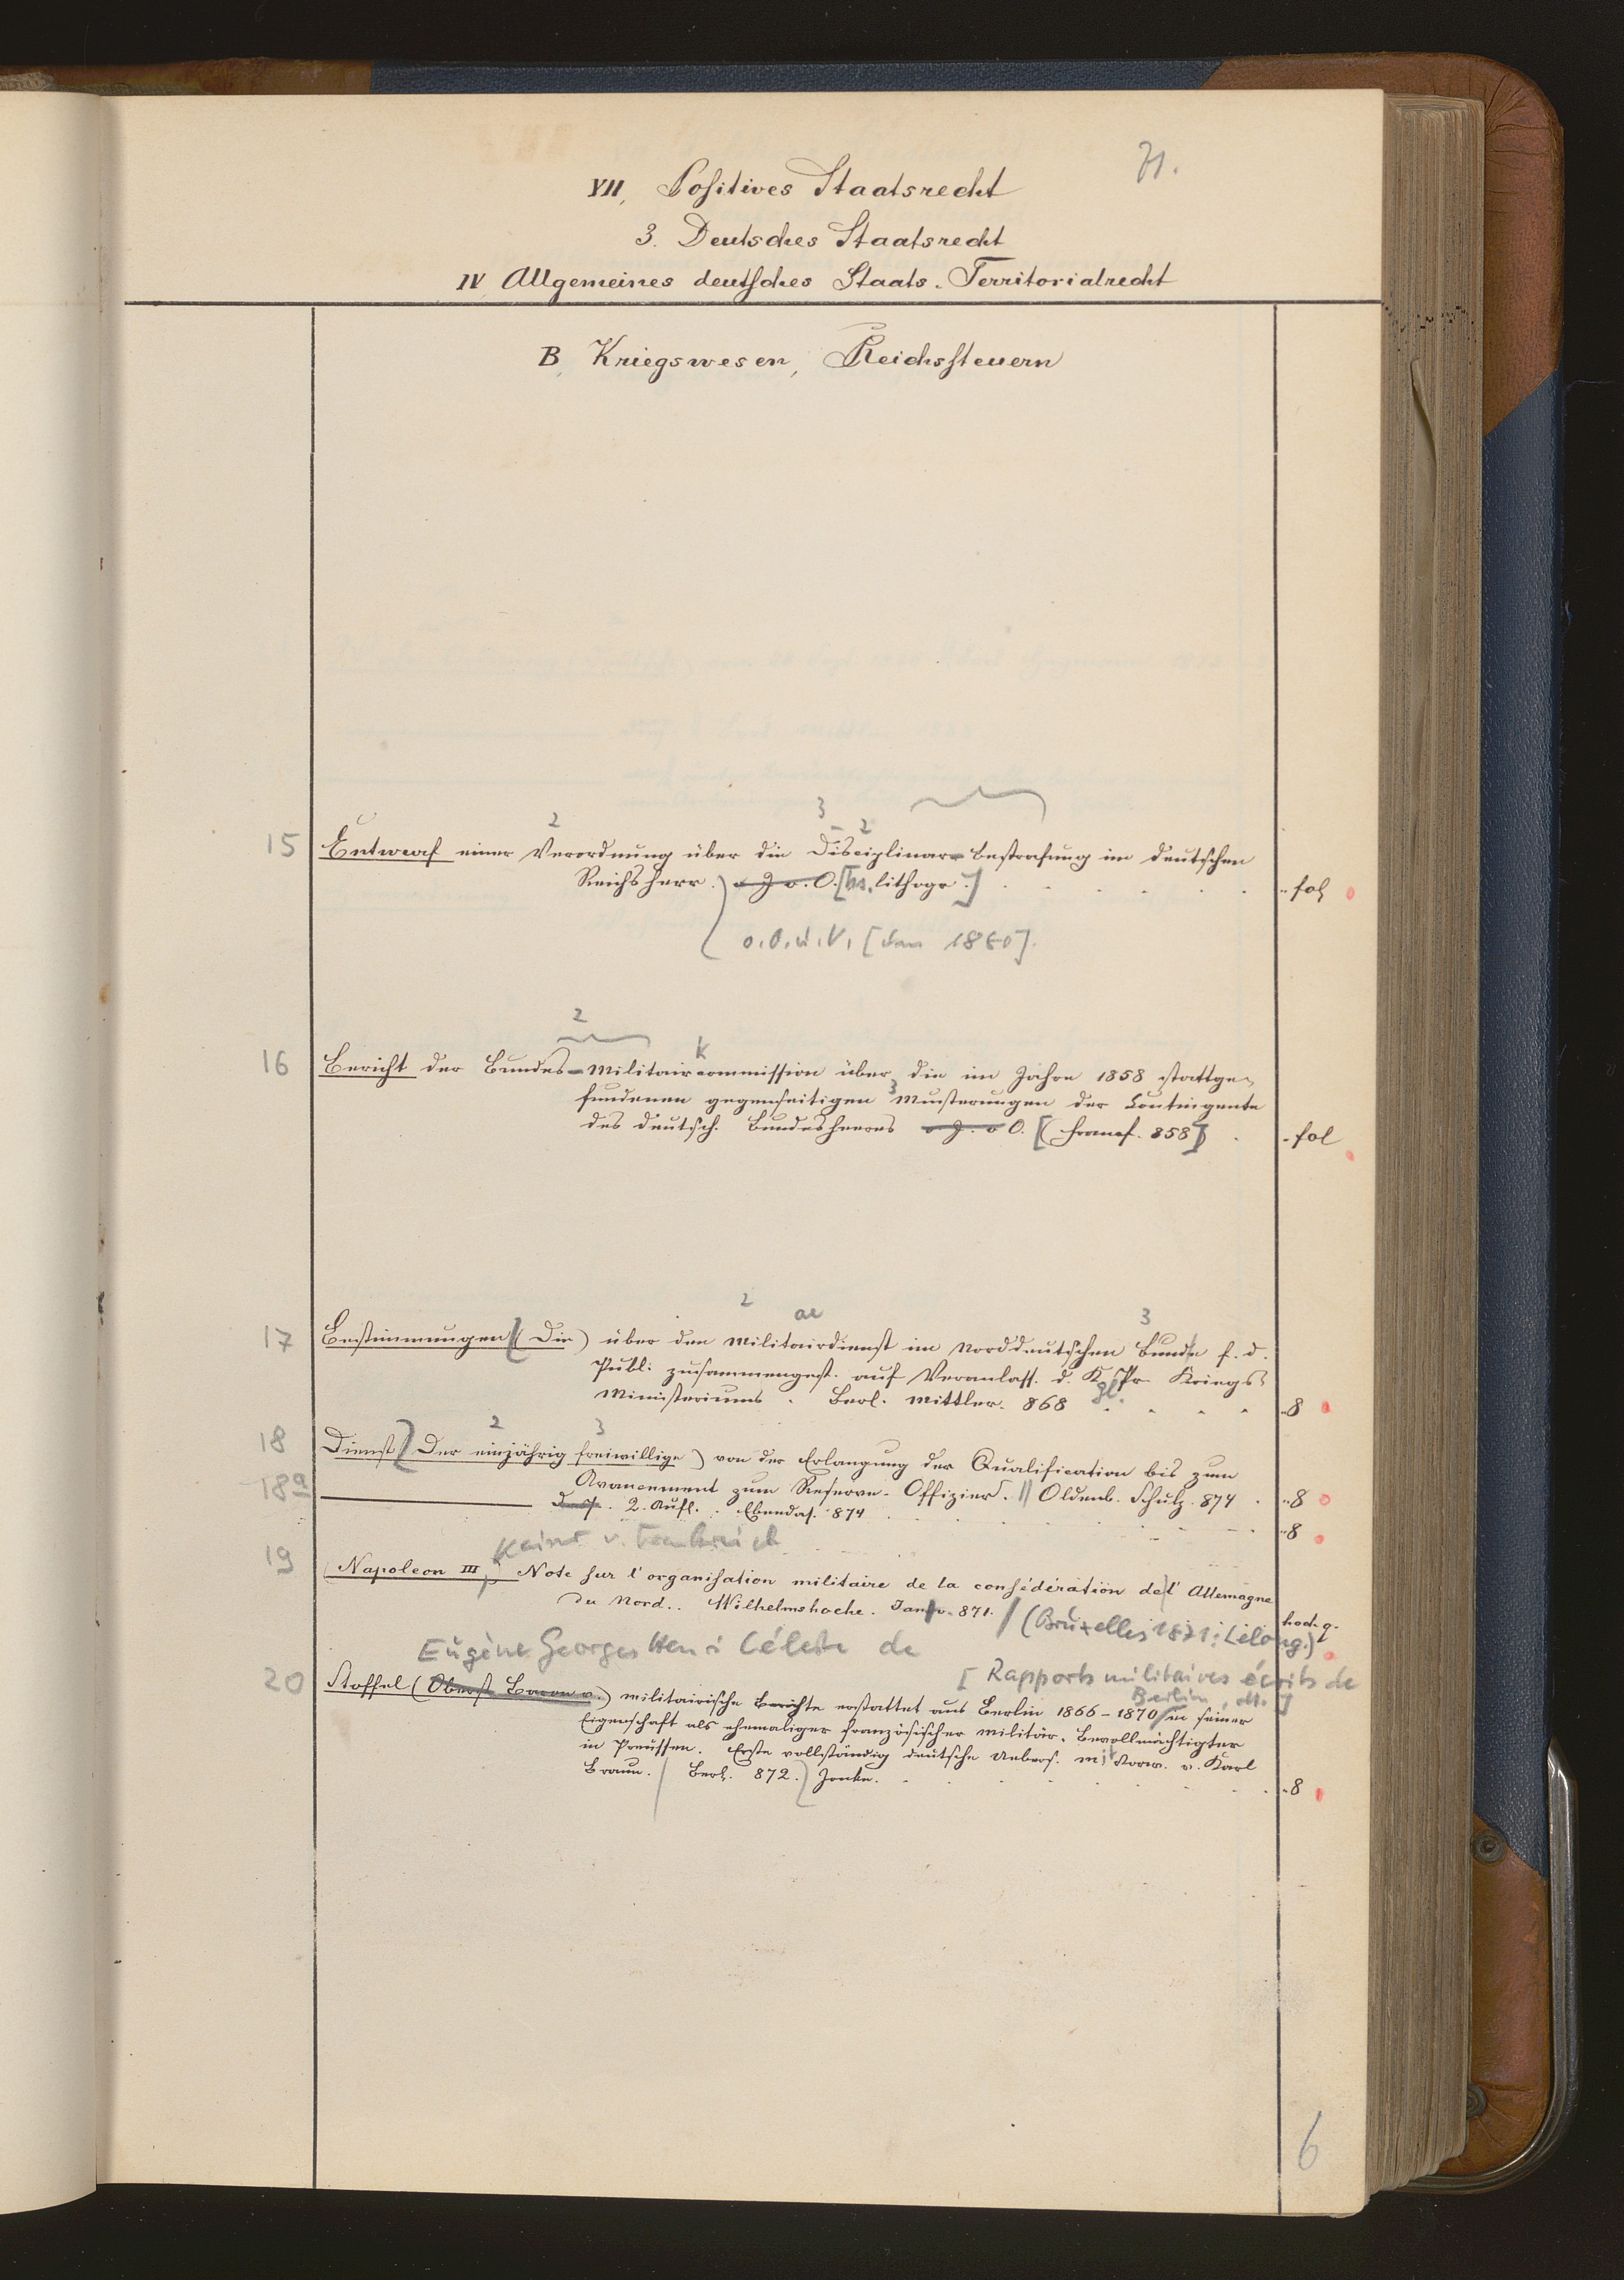 71.
VII, Positives Staatsrecht
3. Deutsches Staatsrecht
IV Allgemeines deutsches Staats-Territorialrecht
B, Kriegswesen, Reichssteuern
2 3 2
15 Entwurf einer Verordnung über die Disciplinar-Bestrafung im deutschen
Reichsheer. o J o. O. [hs. lithogr.] fol
o.O.u.V. [ 1860].
2 K
16 Bericht der Bundes-Militaircommission über die im Jahre 1858 stattge-
fundenen gegenseitigen 3 Musterungen der Contingente
des deutsch. Bundesheeres o. J. o O. [(Francf. 858)] fol
2 ae 3
17 Bestimmungen (Die) über den Militairdienst im Norddeutschen Bunde f. d.
Publ. zusammengest. auf Veranlass. d. K. Pr. Kriegs-
Ministeriums. Berl. Mittler. 868 8
2 3
18 Dienst (Der einjährig freiwillige) von der Erlangung der Qualification bis zum
Avancement zum Reserve-Offizier. || Oldenb. Schulz. 874 8
18a 2. Aufl. Ebendas. 874 8
Kaiser v. Frankreich
19 Napoleon III, Note sur l'organisation militaire de la confédération de l'Allemagne
du Nord.. Wilhelmshoehe. Janv. 871. / (Bruxelles 1871: Lelong.)
Eugène Georges Henri Céleste de
[Rapports militaires écrits de
Berlin, dt.]
20 Stoffel (Oberst Baron v.) militairische Berichte erstattet aus Berlin 1866-1870 in seiner
Eigenschaft als ehemaliger französischer Militär-Bevollmächtigter
in Preussen. Erste vollständig deutsche Uebers. mit Vorw. v. Karl
Braun. Berl. 872. Janke. 8
6